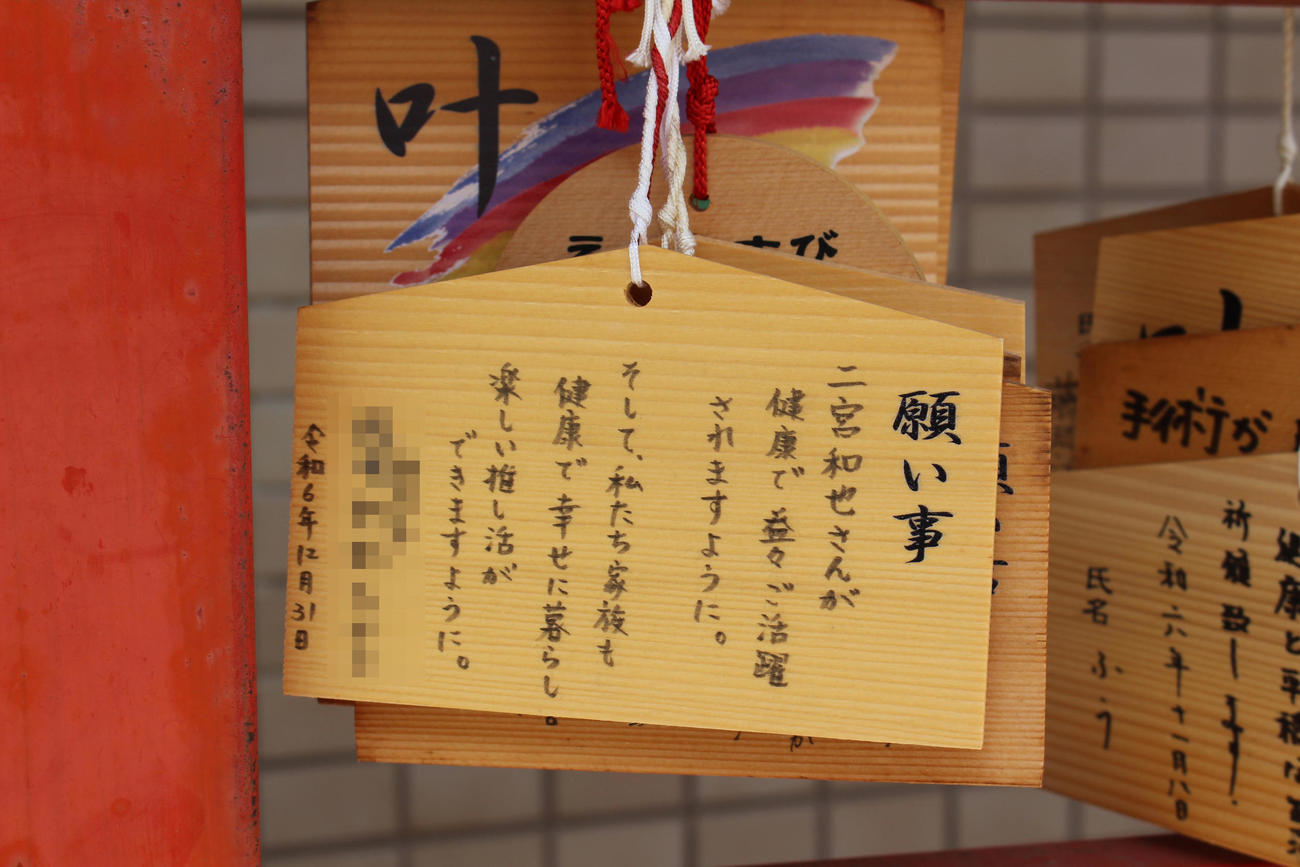 叶
願い事
二宮和也さんが
健康で益々ご活躍
されますように。
そして、私たち家族も
健康で幸せに暮らし。
楽しい推し活が
できますように。
令和6年12月31日
手術が
健康と平穏に
祈願致します.
令和六年十一月八日
氏名 ふう